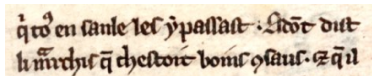 q̃ toꝰ en saule les ẏ passast . Lidõt dist
li marchis q̃ chestoit boins ꝯsaus . ⁊ q̃ il